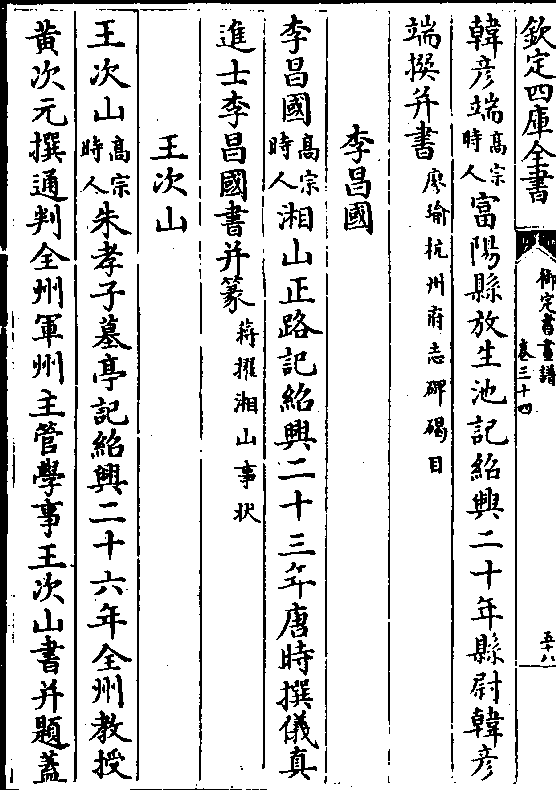 欽定四庫全書
御定書畫譜
卷三十四
五十八
韓彥端高宗時人富陽縣放生池記紹興二十年縣尉韓彥
端撰并書廖瑜杭州府志碑碣目
李昌國
李昌國高宗時人湘山正路記紹興二十三年唐時撰儀真
進士李昌國書并篆蔣擢湘山事狀
王次山
王次山高宗時人朱孝子墓亭記紹興二十六年全州教授
黃次元撰通判全州軍州主管學事王次山書并題蓋